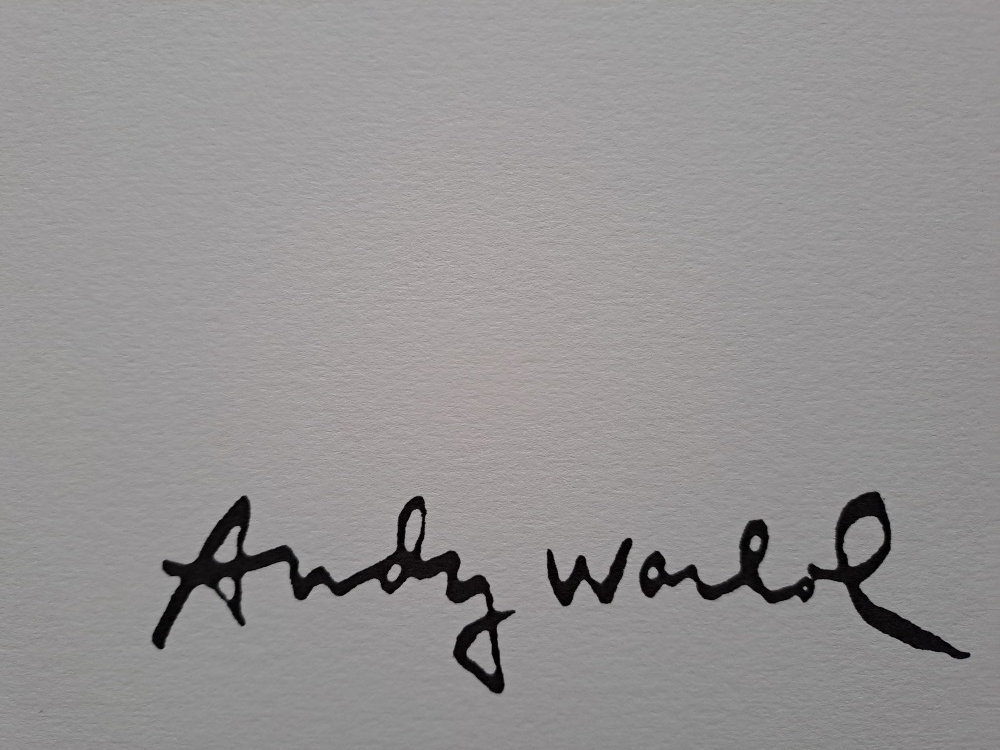 Andy Warhol